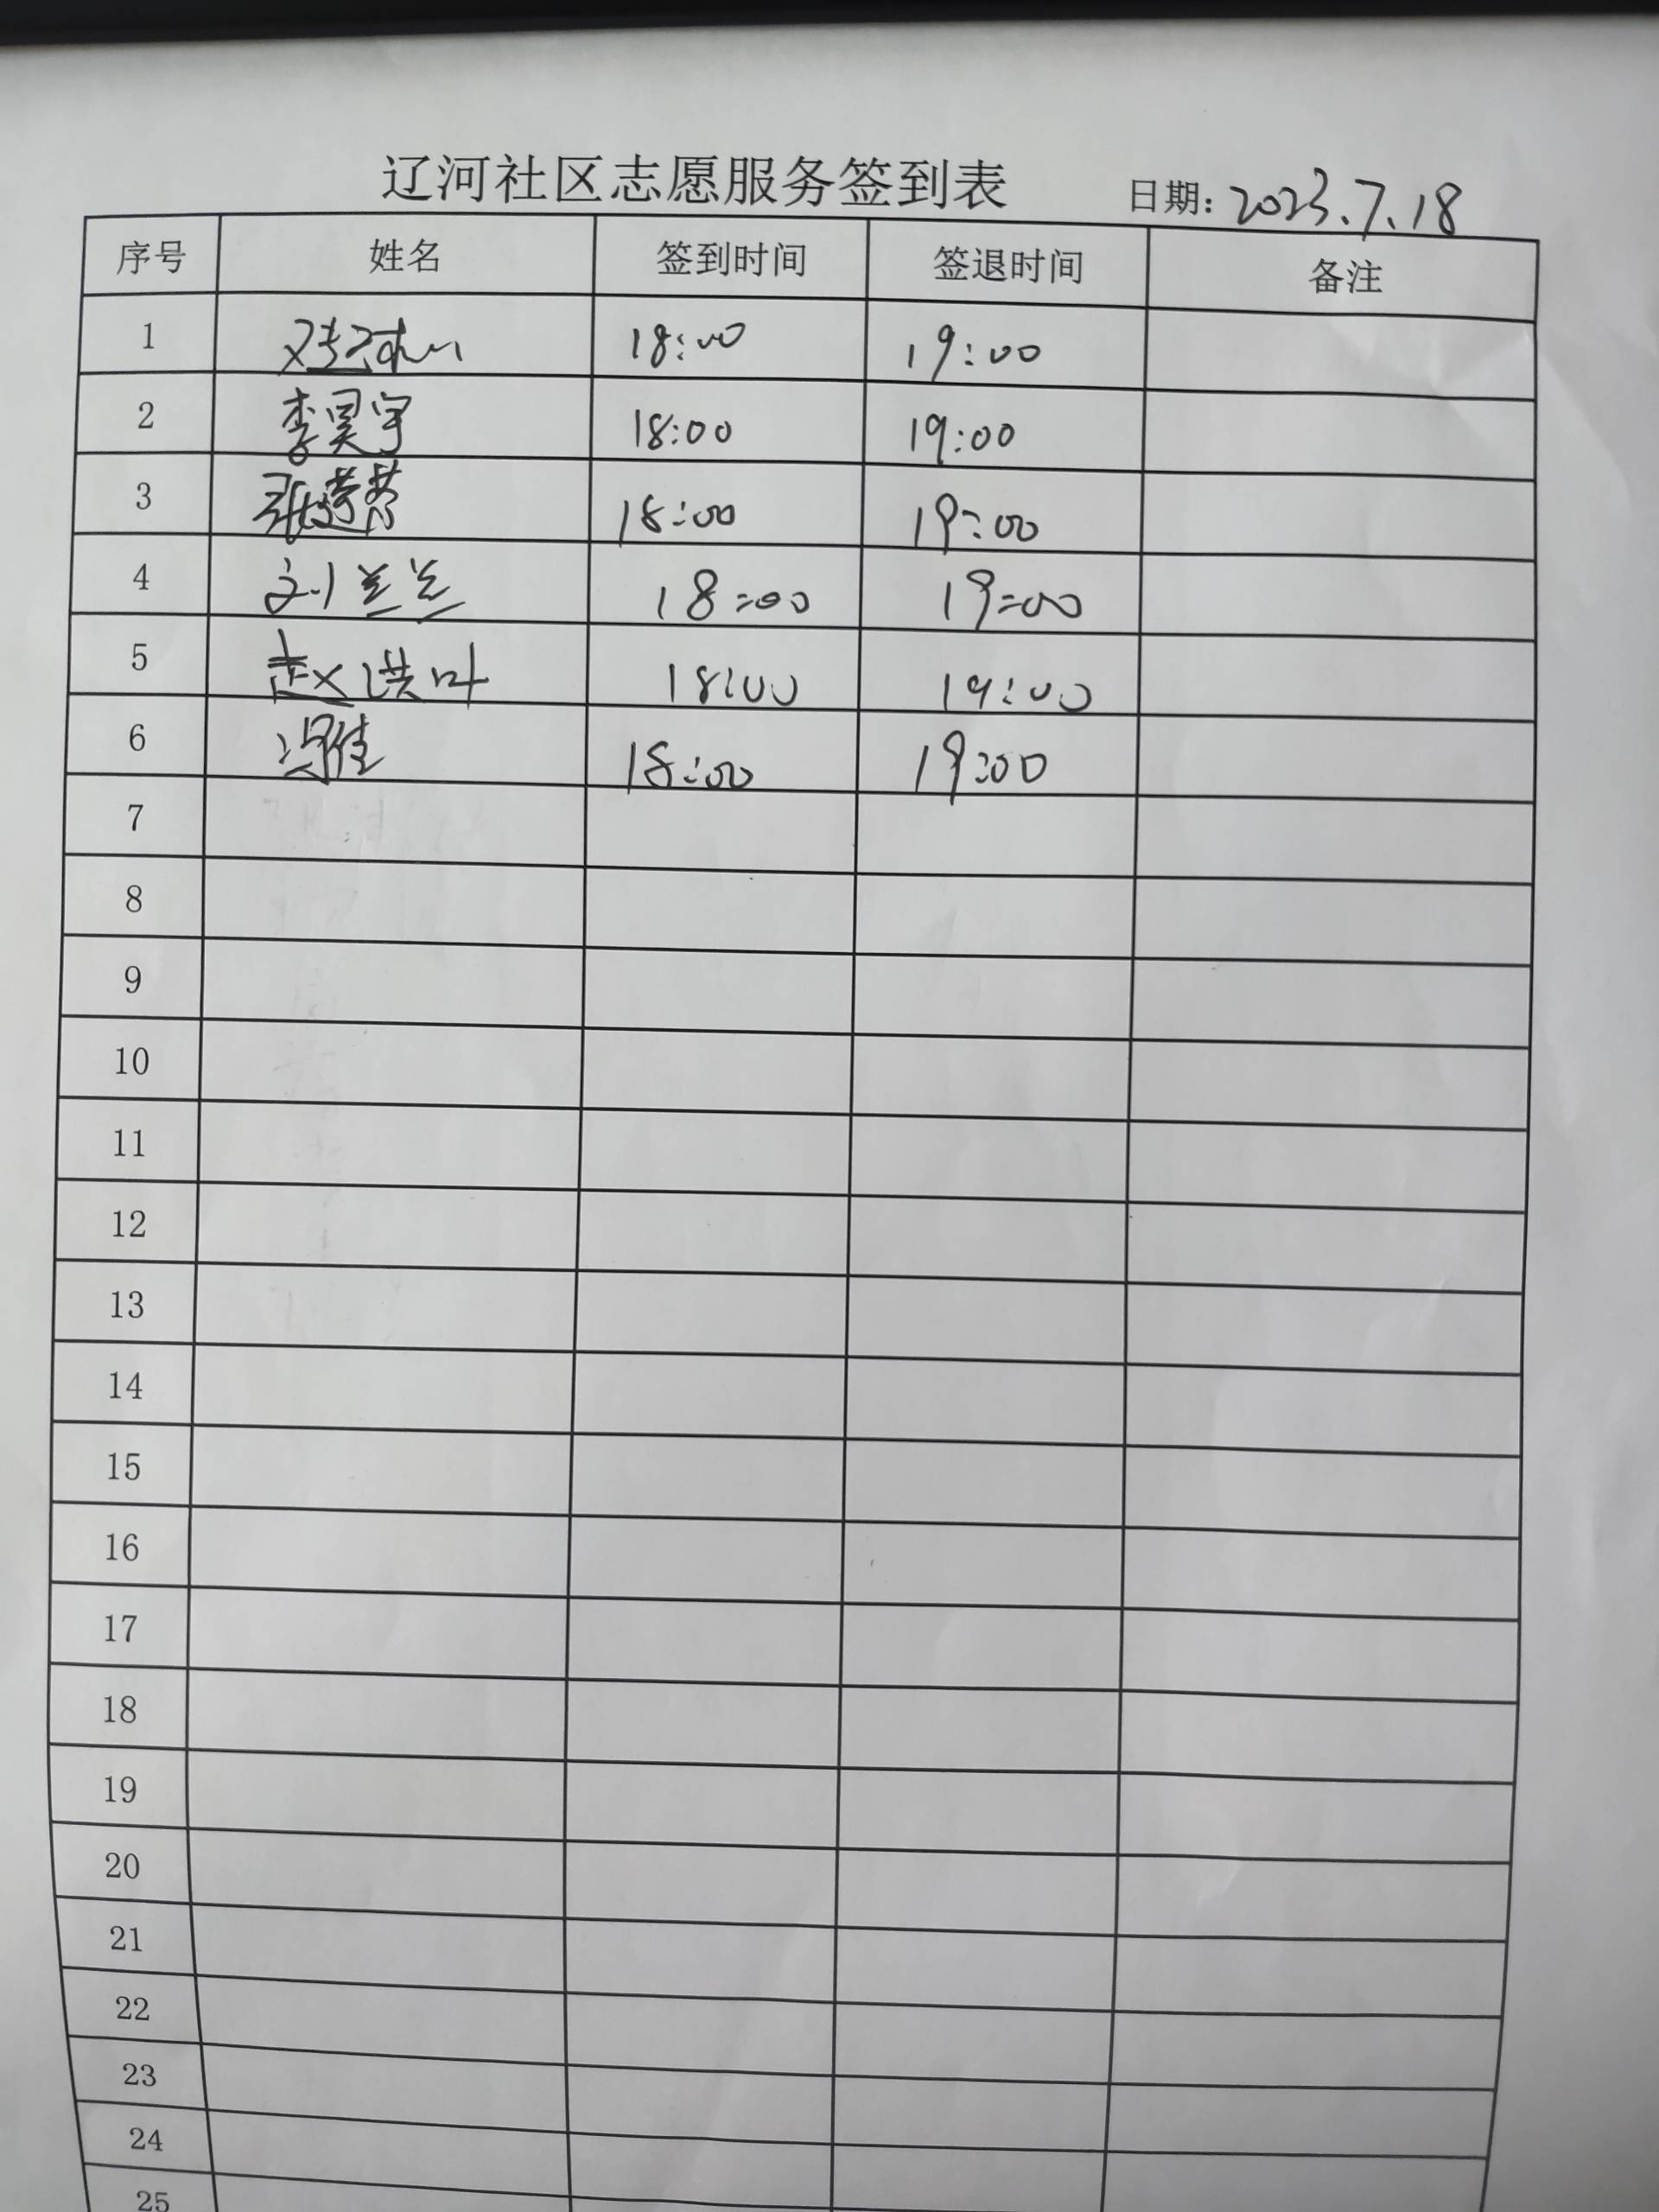 辽河社区志愿服务签到表 日期: 2023.7.18
序号 姓名 签到时间 签退时间 备注
1 18:00 19:00
2 李昊宇 18:00 19:00
3 张 18:00 19:00
4 刘兰兰 18:00 19:00
5 赵洪叶 18:00 19:00
6 冯佳 18:00 19:00
7
8
9
10
11
12
13
14
15
16
17
18
19
20
21
22
23
24
25